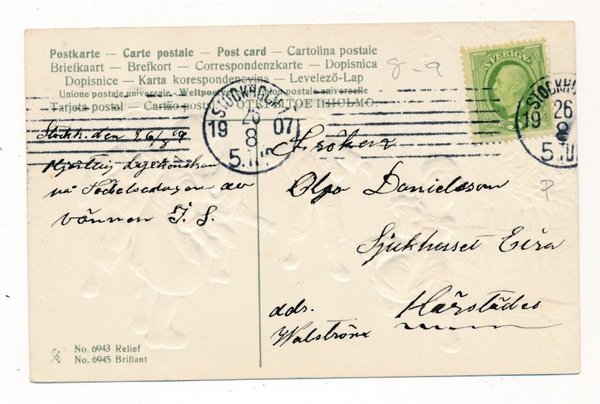 Postkarte – Carte postale – Post card – Cartolina postale
Briefkaart – Brefkort – Correspondenzkarte – Dopisnica
Dopisnice – Karta korespondencyjna – Levelező-Lap
Unione postale universale. – Weltpostverein – Union postale universelle
Tarjeta postal – Cartão postal – ОТКРЫТОЕ ПИСЬМО
8-9
SVERIGE
STOCKHOLM
26
19 8 07
5.
STOCKHOLM
26
19 8
5
Stockh. den
Hjärtlig
på Födelsedagen av
vännen I. S.
Fröken
Olga Danielsson
Sjukhuset Eira
adr. Härstädes
Walström
P
No. 6943 Relief
No. 6945 Brillant